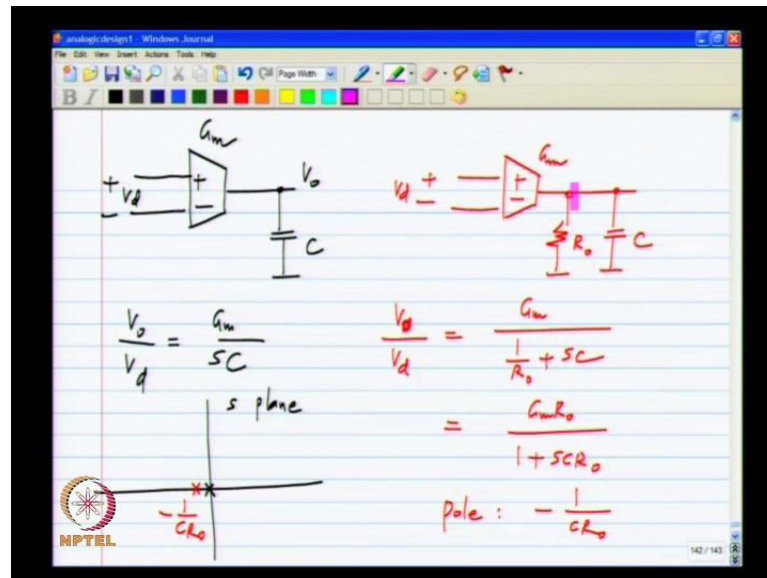 analogicdesign1 - Windows Journal
File Edit View Insert Actions Tools Help
Page Width
B I
Gm
+ Vd -
+
-
Vo
C
Gm
Vd + -
+
-
Ro
C
Vo/Vd = Gm/sC
s plane
-1/CRo
Vo/Vd = Gm/(1/Ro + sC)
= GmRo/(1 + sCRo)
Pole : -1/CRo
NPTEL
142 / 143